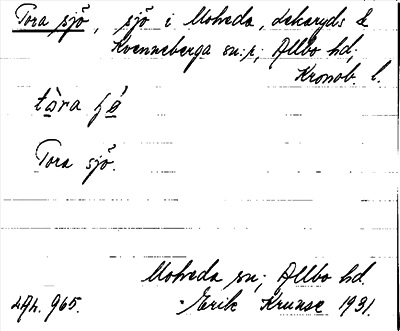 Tora sjö, sjö i Moheda, Lekaryds &
Kvenneberga sn:r; Allbo hd,
Kronob. l.
tà̱ra ʃá̱
Tora sjö.
Moheda sn; Allbo hd.
Erik Kruuse 1931.
965.